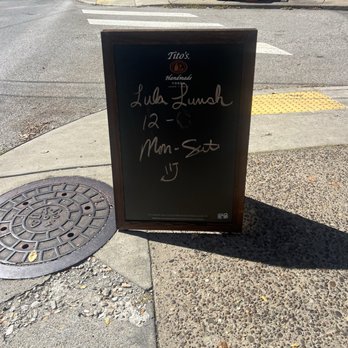 Tito's
Handmade
VODKA
Lula Lunch
12 -
Mon-Sat